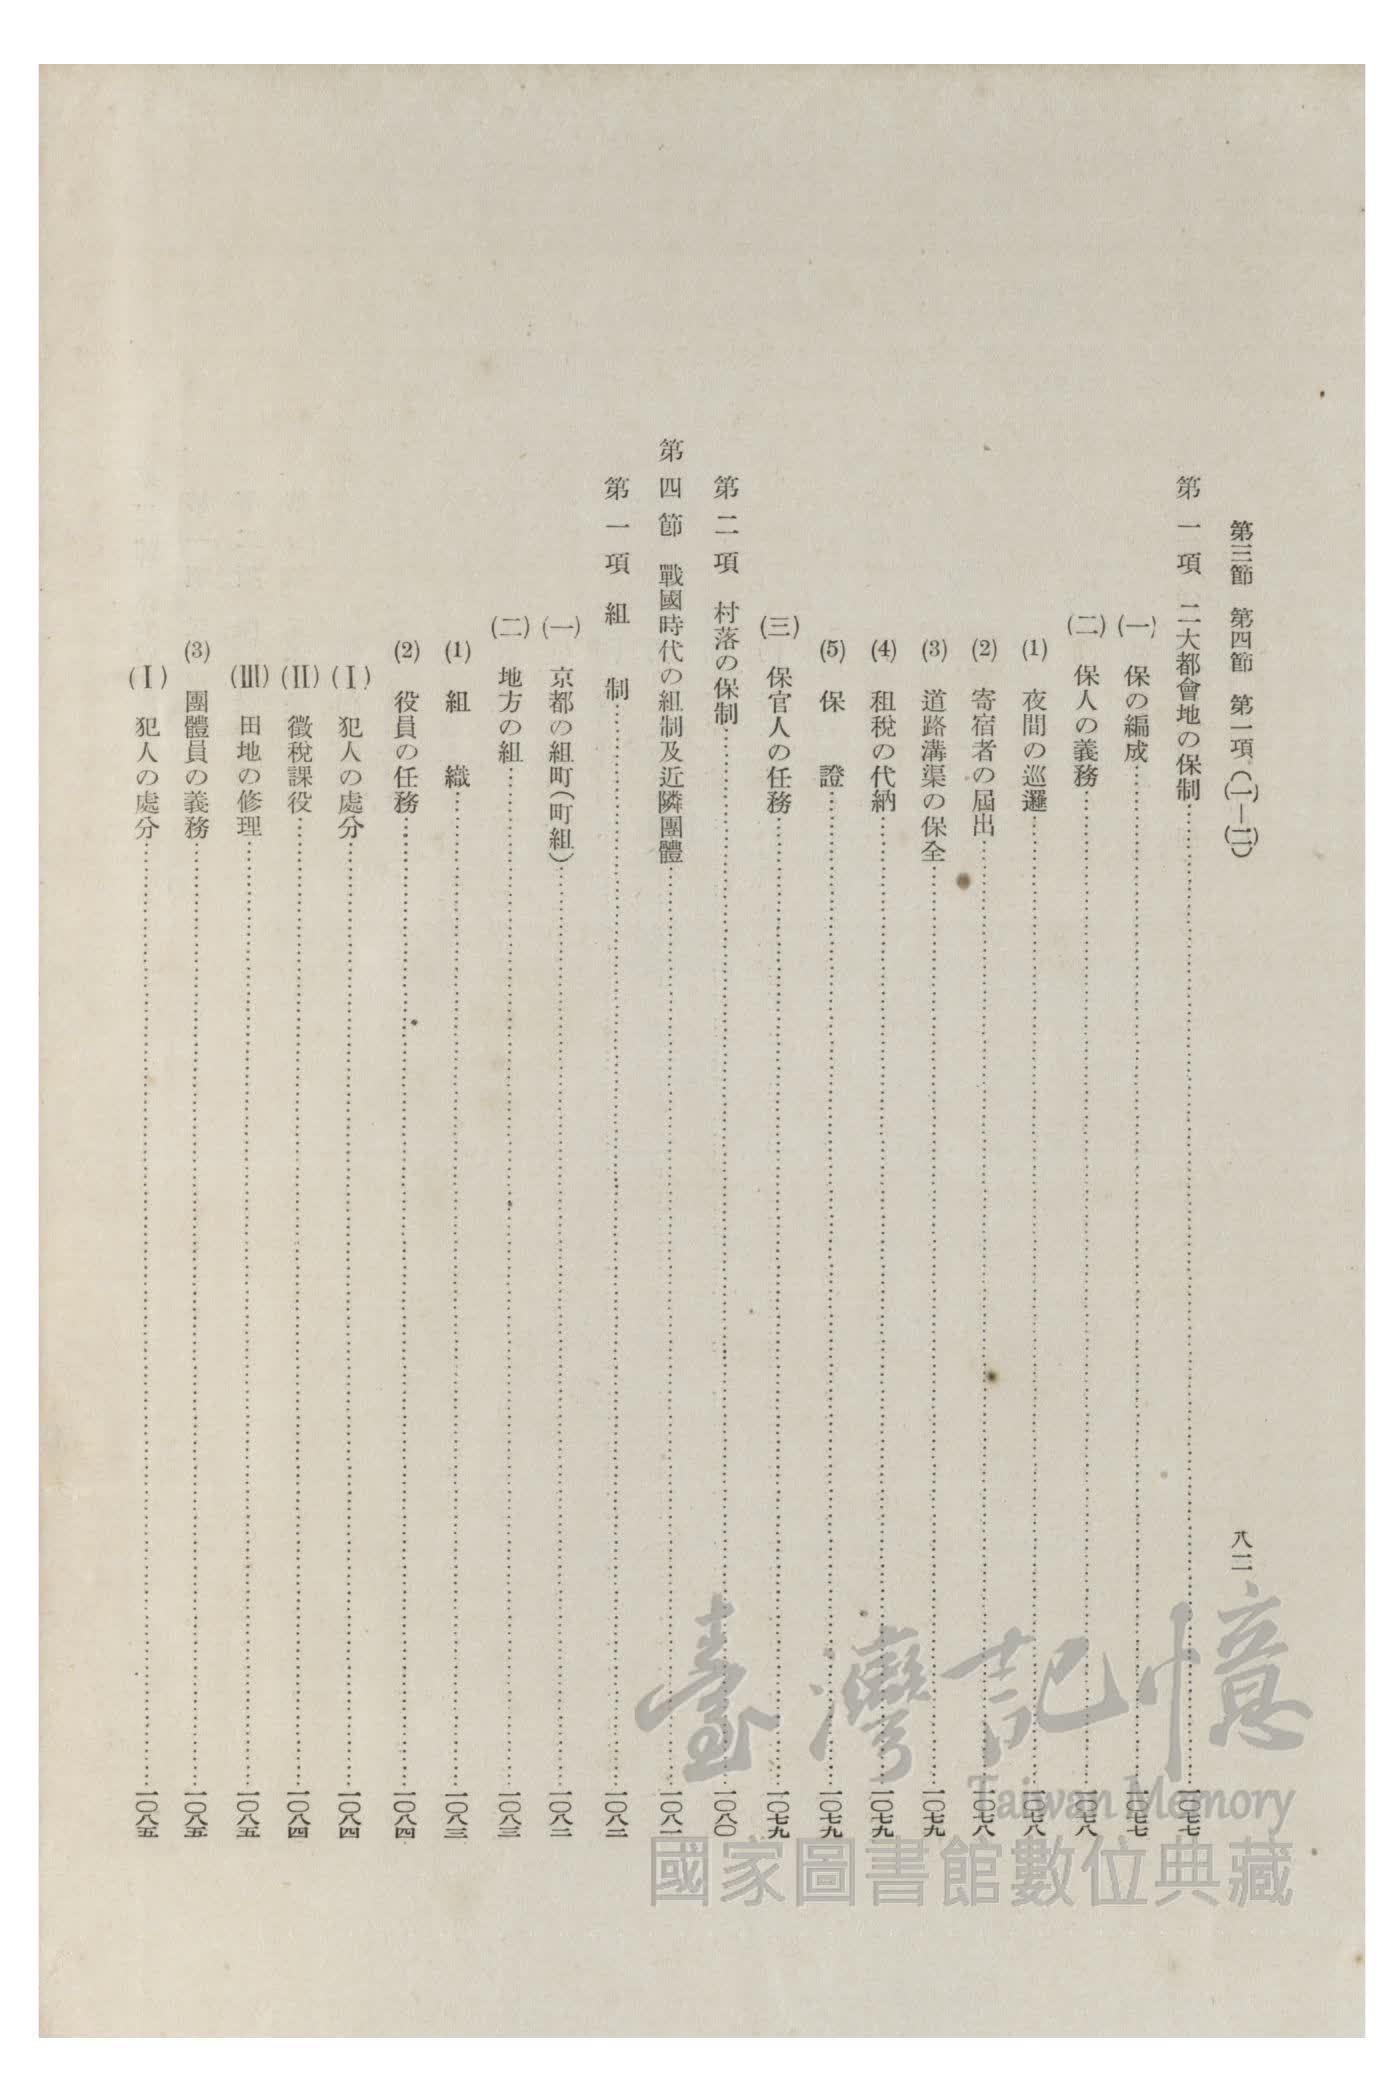 第三節 第四節 第一項(一)—(二) 八二
第一項 二大都會地の保制……一〇七七
(一) 保の編成……一〇七七
(二) 保人の義務……一〇七八
(1) 夜間の巡邏……一〇七八
(2) 寄宿者の屆出……一〇七八
(3) 道路溝渠の保全……一〇七九
(4) 租稅の代納……一〇七九
(5) 保證……一〇七九
(三) 保官人の任務……一〇七九
第二項 村落の保制……一〇八〇
第四節 戰國時代の組制及近隣團體……一〇八一
第一項 組制……一〇八二
(一) 京都の組町(町組)……一〇八二
(二) 地方の組……一〇八三
(1) 組織……一〇八三
(2) 役員の任務……一〇八四
(I) 犯人の處分……一〇八四
(II) 徵稅課役……一〇八四
(III) 田地の修理……一〇八五
(3) 團體員の義務……一〇八五
(I) 犯人の處分……一〇八五
臺灣記憶
Taiwan Memory
國家圖書館數位典藏